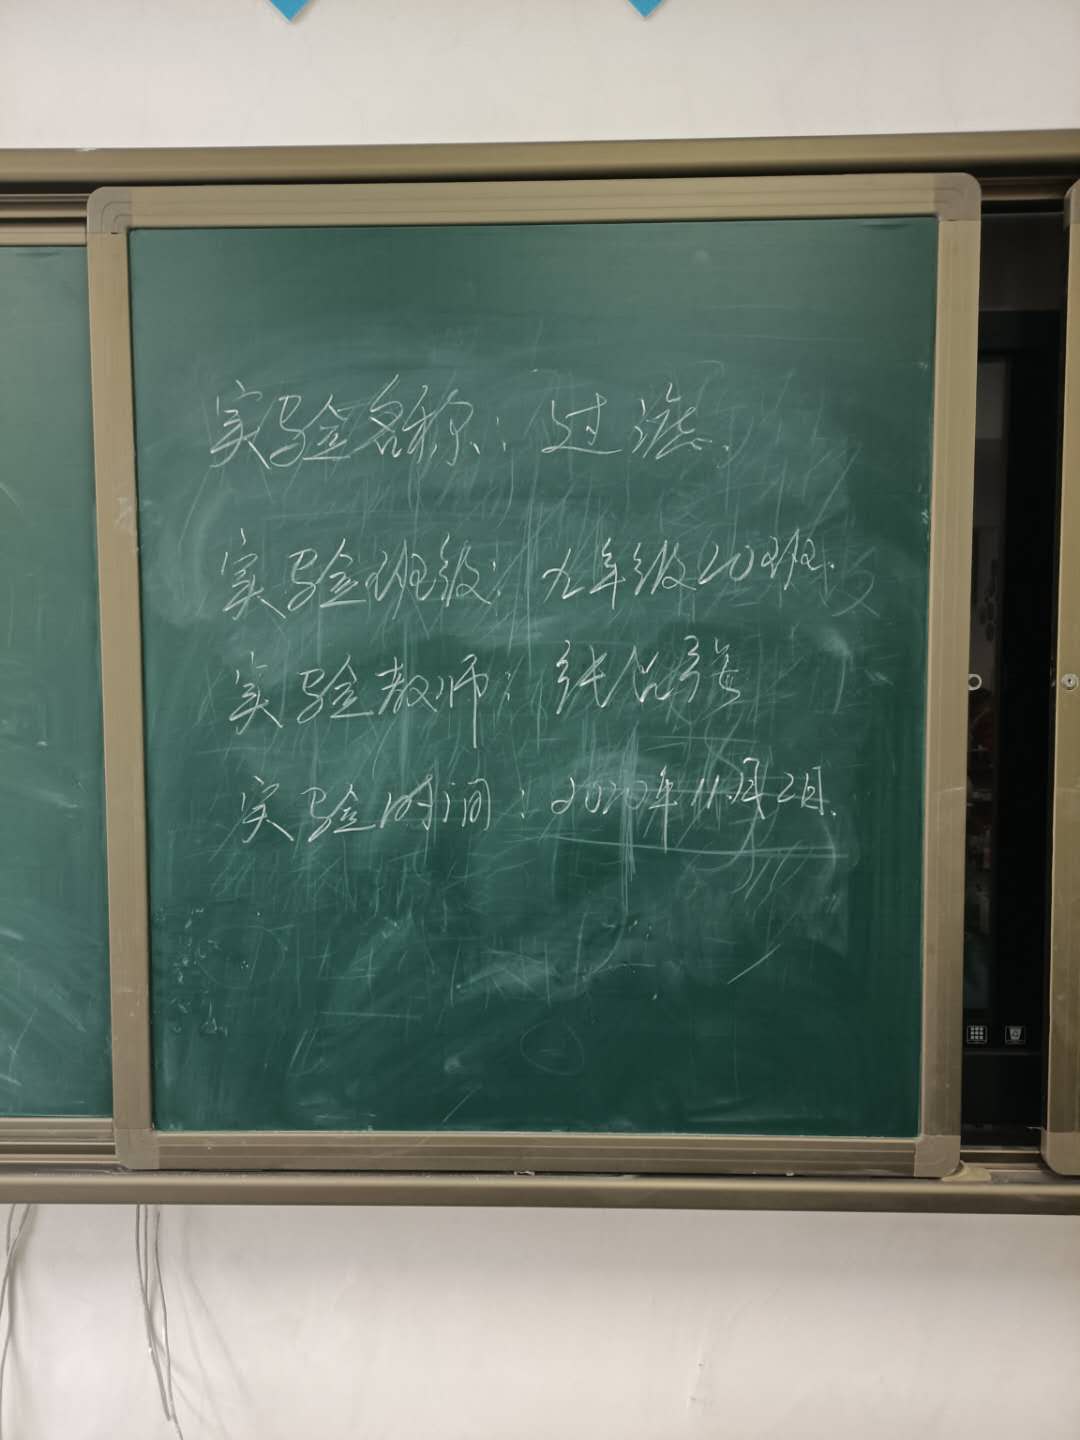 实验名称：过滤.
实验班级：九年级20班.
实验教师：张
实验时间：2020年11月2日.